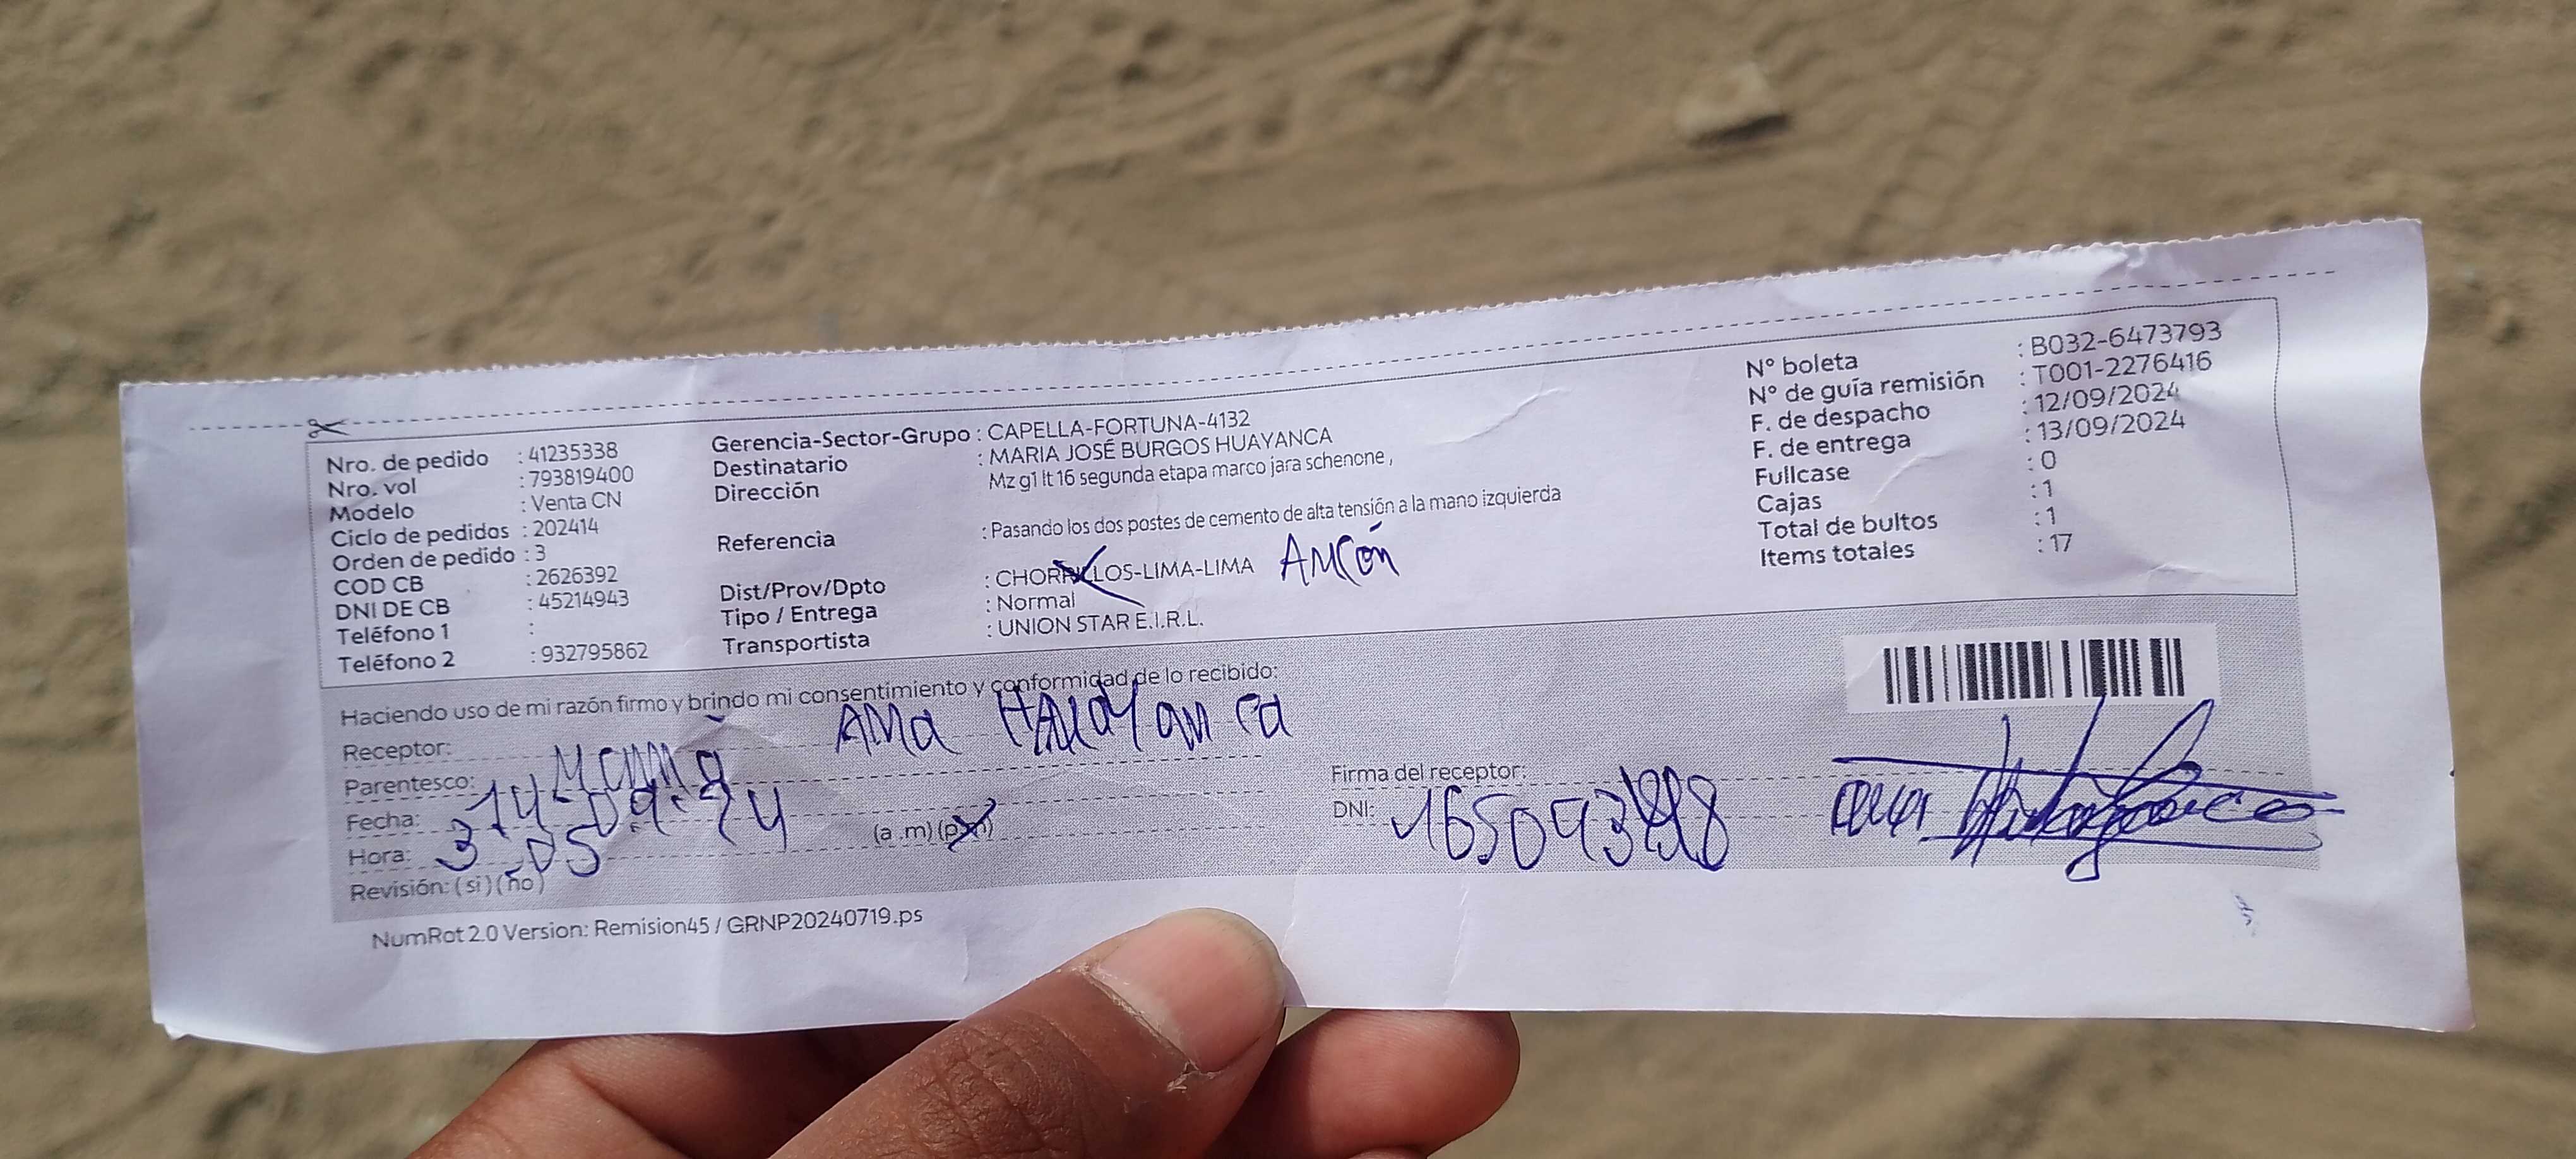 Nro. de pedido : 41235338
Nro. vol : 793819400
Modelo : Venta CN
Ciclo de pedidos : 202414
Orden de pedido : 3
COD CB : 2626392
DNI DE CB : 45214943
Teléfono 1 :
Teléfono 2 : 932795862
Gerencia-Sector-Grupo : CAPELLA-FORTUNA-4132
Destinatario : MARIA JOSÉ BURGOS HUAYANCA
Dirección : Mz g1 lt 16 segunda etapa marco jara schenone ,
Referencia : Pasando los dos postes de cemento de alta tensión a la mano izquierda
Dist/Prov/Dpto : CHORRILLOS-LIMA-LIMA Ancón
Tipo / Entrega : Normal
Transportista : UNION STAR E.I.R.L.
N° boleta : B032-6473793
N° de guía remisión : T001-2276416
F. de despacho : 12/09/2024
F. de entrega : 13/09/2024
Fullcase : 0
Cajas : 1
Total de bultos : 1
Items totales : 17
Haciendo uso de mi razón firmo y brindo mi consentimiento y conformidad de lo recibido:
Receptor: Ana
Parentesco: Mamá
Fecha: 14-09-24
Hora: 3:05 (a .m) (p.m)
Revisión: (si) (no)
Firma del receptor:
DNI:
NumRot 2.0 Version: Remision45 / GRNP20240719.ps